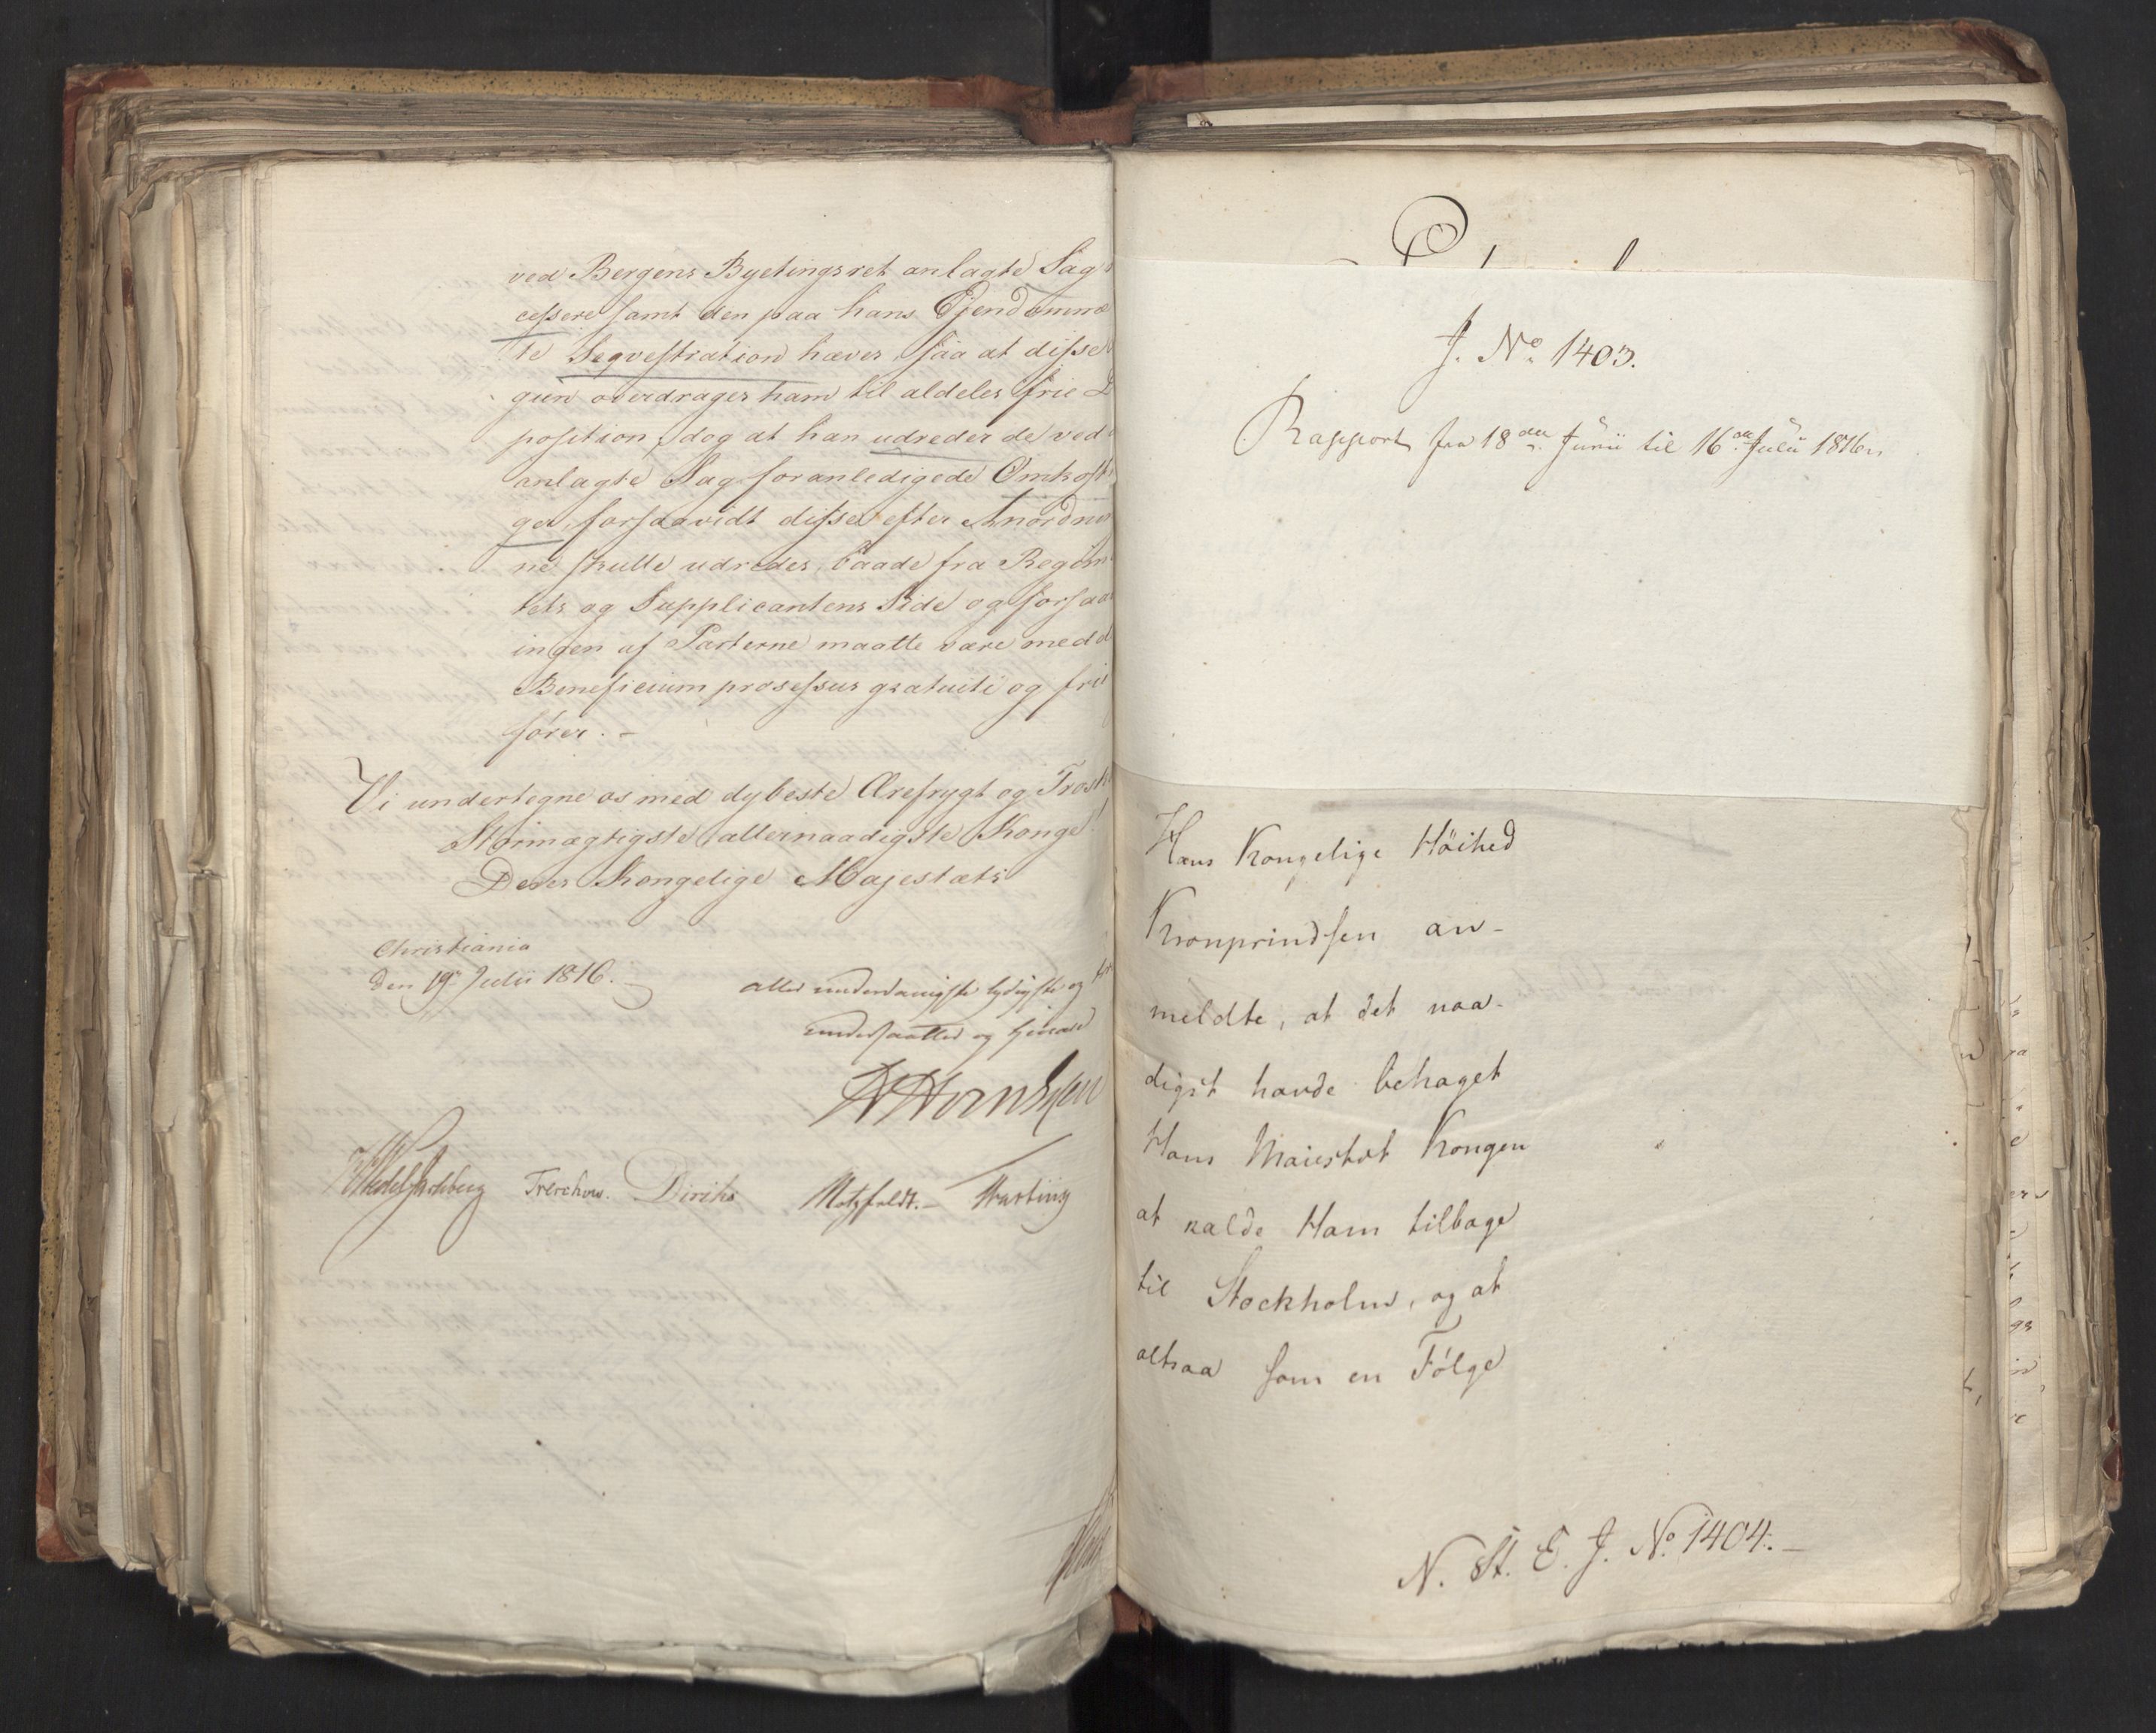 ved Bergens Byetingsret anlagte Sag
cessere samt den paa hans Ejendomme
te Seqvestration hæves, saa at disse
gien overdrages ham til aldeles frie
position, dog at han udreder de ved
anlagte Sag foranledigede Omkost
ger, forsaavidt disse efter Anordnin
ne skulle udredes, baade fra Regim
tets og Supplicantens Side og forsaa
ingen af Parterne maatte være medd
Beneficium processus gratuiti og fri
fører. -
Vi undertegne os med dybeste Ærefrygt og Trosk
Stormægtigste allernaadigste Konge!
Deres Kongelige Majestæts
Christiania
den 19de Julii 1816.
allerunderdanigste lydigste og
undersaatter og tjenere
Wedel Jarlsberg Treschow. Diriks Motzfeldt. - Hasting
J. No 1403.
Rapport fra 18den Junii til 16de Julii 1816.
Hans Kongelige Höihed
Kronprindsen an-
meldte, at det naa-
digst havde behaget
Hans Maiestæt Kongen
at kalde Ham tilbage
til Stockholm, og at
altsaa som en Følge
N. St. E. J. No 1404. -